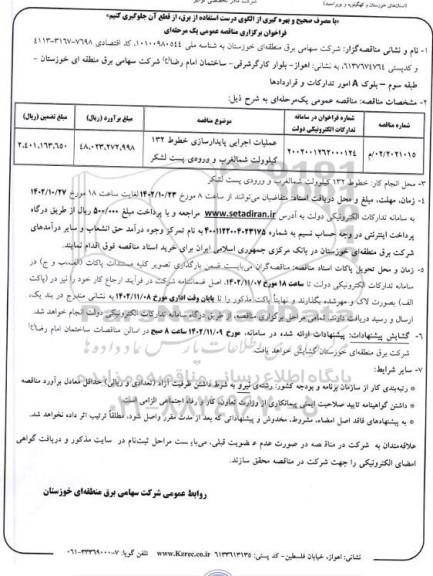 (استان‌های خوزستان و کهگیلویه و بویراحمد)
«با مصرف صحیح و بهره گیری از الگوی درست استفاده از برق، از قطع آن جلوگیری کنیم»
فراخوان برگزاری مناقصه عمومی یک مرحله‌ای
۱- نام و نشانی مناقصه‌گزار: شرکت سهامی برق منطقه‌ای خوزستان به شناسه ملی ۱۰۱۰۰۹۸۰۵۴۴، کد اقتصادی ۷۶۹۸-۳۱۶۷-۴۱۱۳
و کدپستی ۶۱۳۷۶۷۴۷۶۴، به نشانی: اهواز- بلوار کارگرشرقی- ساختمان امام رضا(ع) شرکت سهامی برق منطقه ای خوزستان -
طبقه سوم - بلوک A امور تدارکات و قراردادها
۲- مشخصات مناقصه: مناقصه عمومی یک‌مرحله‌ای به شرح ذیل:
شماره مناقصه | شماره فراخوان در سامانه تدارکات الکترونیکی دولت | موضوع مناقصه | مبلغ برآورد (ریال) | مبلغ تضمین (ریال)
۰۲/۲۰۲۱۰۱۵/م | ۲۰۰۲۰۰۱۲۶۲۰۰۰۱۲۴ | عملیات اجرایی پایدارسازی خطوط ۱۳۲ کیلوولت شمالغرب و ورودی پست لشکر | ۴۸,۰۲۳,۲۷۲,۹۹۸ | ۲,۴۰۱,۱۶۳,۶۵۰
۳- محل انجام کار: خطوط ۱۳۲ کیلوولت شمالغرب و ورودی پست لشکر
۴- زمان، مهلت، مبلغ و محل دریافت اسناد: متقاضیان می‌توانند از ساعت ۸ مورخ ۱۴۰۲/۱۰/۲۳ لغایت ساعت ۱۸ مورخ ۱۴۰۲/۱۰/۲۷
به سامانه تدارکات الکترونیکی دولت به آدرس www.setadiran.ir مراجعه و با پرداخت مبلغ ۵۰۰/۰۰۰ ریال از طریق درگاه
پرداخت اینترنتی در وجه حساب نسیم به شماره ۴۰۰۱۱۲۲۰۰۴۰۲۳۱۷۵ به نام تمرکز وجوه درآمد حق انشعاب و سایر درآمدهای
شرکت برق منطقه‌ای خوزستان در بانک مرکزی جمهوری اسلامی ایران برای خرید اسناد مناقصه فوق اقدام نمایند.
۵- زمان و محل تحویل پاکات اسناد مناقصه: مناقصه‌گران می‌بایست ضمن بارگذاری تصویر کلیه مستندات پاکات (الف،ب و ج) در
سامانه تدارکات الکترونیکی دولت تا ساعت ۱۸ مورخ ۱۴۰۲/۱۱/۰۷، اصل ضمانتنامه شرکت در فرآیند ارجاع کار خود را نیز در (پاکت
الف) بصورت لاک و مهرشده بگذارند و نهایتاً پاکت مذکور را تا پایان وقت اداری مورخ ۱۴۰۲/۱۱/۰۸ به نشانی مندرج در بند یک،
ارسال و رسید دریافت دارند. تمامی مراحل برگزاری مناقصه، از طریق درگاه سامانه تدارکات الکترونیکی دولت انجام خواهد شد.
۶- گشایش پیشنهادات: پیشنهادات ارائه شده در سامانه، مورخ ۱۴۰۲/۱۱/۰۹ ساعت ۸ صبح در سالن مناقصات ساختمان امام رضا(ع)
شرکت برق منطقه‌ای خوزستان گشایش خواهد یافت.
۷- سایر شرایط:
* رتبه‌بندی کار از سازمان برنامه و بودجه کشور: رشته‌ی نیرو به شرط داشتن ظرفیت آزاد (تعدادی و ریالی) حداقل معادل برآورد مناقصه
* داشتن گواهینامه تایید صلاحیت ایمنی پیمانکاری از وزارت تعاون، کار و رفاه اجتماعی الزامی است.
* به پیشنهادهای فاقد امضاء، مشروط، مخدوش و پیشنهاداتی که بعد از مدت مقرر واصل شود، مطلقاً ترتیب اثر داده نخواهد شد.
علاقه‌مندان به شرکت در مناقصه در صورت عدم عضویت قبلی، می‌بایست مراحل ثبت‌نام در سایت مذکور و دریافت گواهی
امضای الکترونیکی را جهت شرکت در مناقصه محقق سازند.
روابط عمومی شرکت سهامی برق منطقه‌ای خوزستان
نشانی: اهواز، خیابان فلسطین- کد پستی: ۶۱۳۳۶۱۳۱۳۵ www.Kzrec.co.ir تلفن گویا: ۷-۳۳۳۶۹۰۰۰-۰۶۱